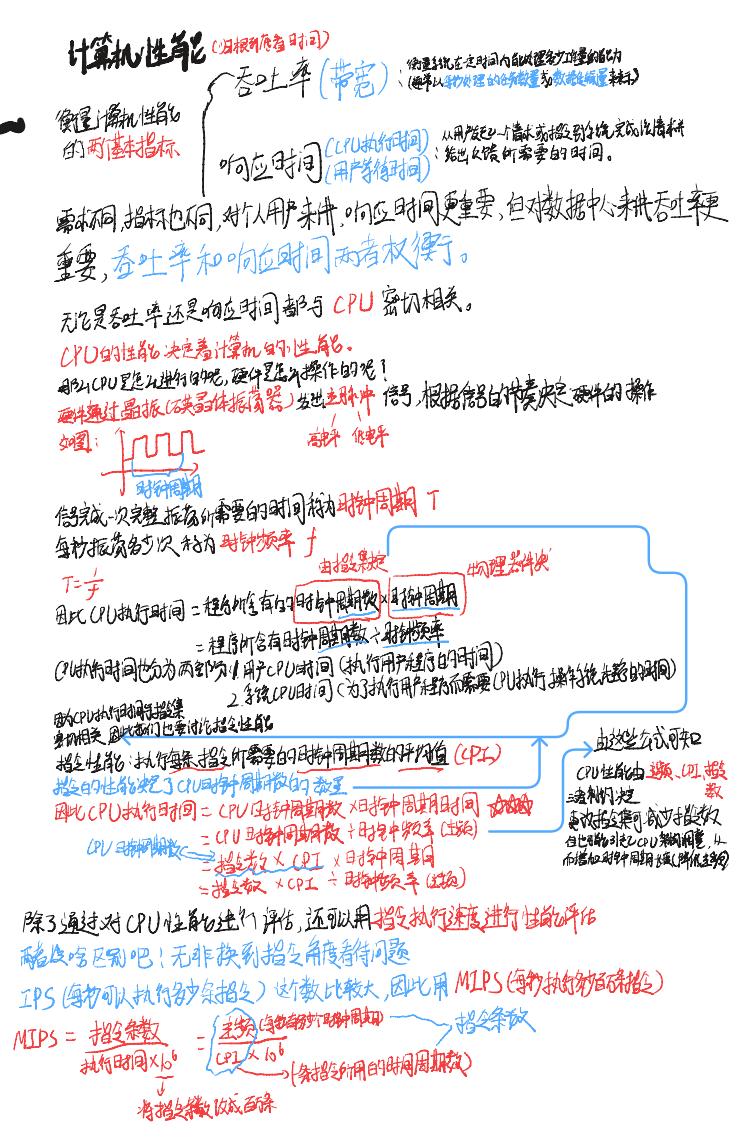 计算机性能(归根到底看时间)
吞吐率(带宽):衡量系统在一定时间内能处理多少工作量的能力
(通常以每秒处理的任务数量或数据传输量来表示)
衡量计算机性能
的两个基本指标
响应时间(CPU执行时间)(用户等待时间):从用户发起一个请求或指令到系统完成该请求并
给出反馈所需要的时间。
需求不同,指标也不同,对个人用户来讲,响应时间更重要,但对数据中心来讲吞吐率更
重要,吞吐率和响应时间两者权衡。
无论是吞吐率还是响应时间都与CPU密切相关。
CPU的性能决定着计算机的性能。
那么CPU是怎么进行的呢,硬件是怎么操作的呢?
硬件通过晶振(石英晶体振荡器)发出脉冲信号,根据信号的节奏决定硬件的操作
如图:
高电平 低电平
时钟周期
信号完成一次完整振荡所需要的时间称为时钟周期 T
每秒振荡多少次称为时钟频率 f
由指令集决定
物理器件决
T=1/f
因此CPU执行时间=程序所含有的时钟周期数×时钟周期
=程序所含有时钟周期数÷时钟频率
CPU执行时间也分为两部分 1.用户CPU时间(执行用户程序的时间)
2.系统CPU时间(为了执行用户程序而需要CPU执行操作系统程序的时间)
因为CPU执行时间与指令集
密切相关,因此我们也要讨论指令性能
指令性能:执行每条指令所需要的时钟周期数的平均值(CPI)
指令的性能决定了CPU时钟周期数的数量
因此CPU执行时间=CPU时钟周期数×时钟周期时间 ☆☆☆
=CPU时钟周期数÷时钟频率(主频)
CPU时钟周期数
=指令数×CPI×时钟周期
=指令数×CPI÷时钟频率(主频)
由这些公式可知
CPU性能由主频、CPI、指令
数
三者制约决定
更改指令集可减少指令数
但也可能引起CPU架构的调整,从
而增加时钟周期长度(降低主频)
除了通过对CPU性能进行评估,还可以用指令执行速度进行性能评估
两者没啥区别吧!无非换到指令角度看待问题
IPS(每秒可以执行多少条指令)这个数比较大,因此用MIPS(每秒执行多少百万条指令)
MIPS=指令条数/执行时间×10⁶=主频(每秒有多少个时钟周期)/CPI×10⁶
指令条数
(一条指令所用的时间周期数)
将指令条数改成百万条